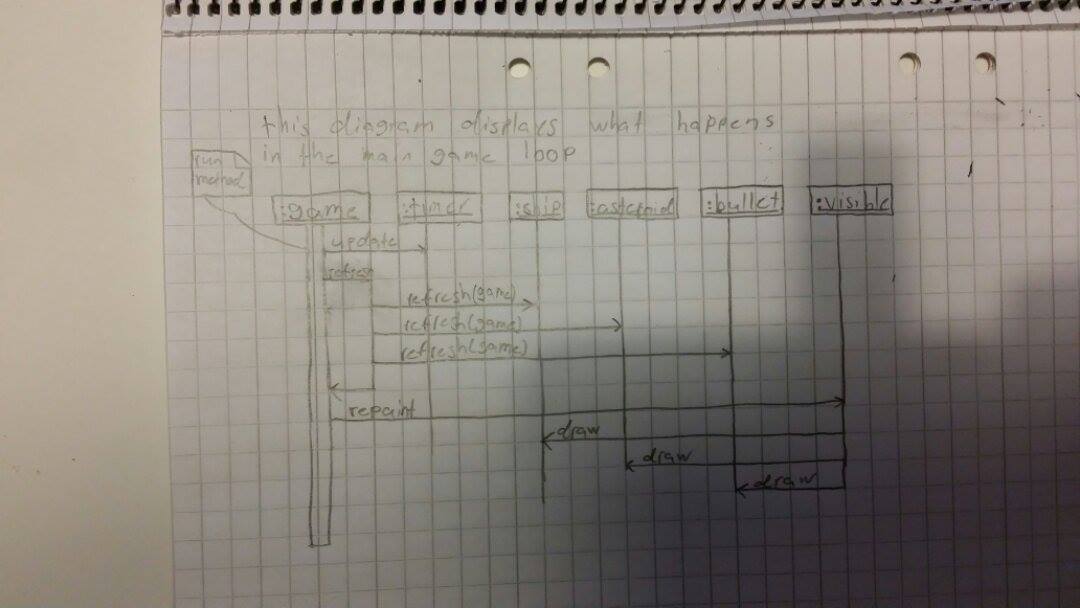 this diagram displays what happens
in the main game loop
run
method
:game
:timer
:ship
:asteroid
:bullet
:visible
update
refresh
refresh(game)
refresh(game)
refresh(game)
repaint
draw
draw
draw